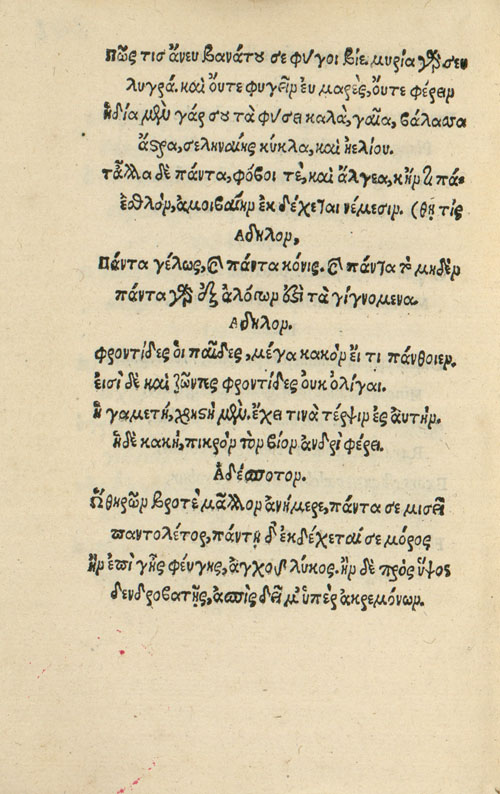 Πῶς τις ἄνευ θανάτου σε φύγοι βίε. μυρία γάρ σευ
λυγρά. καὶ οὔτε φυγεῖν εὐμαρὲς, οὔτε φέρειν
ἡδέα μὲν γάρ σου τὰ φύσει καλὰ, γαῖα, θάλασσα
ἄστρα, σεληναίης κύκλα, καὶ ἠελίου.
τἆλλα δὲ πάντα, φόβοι τὲ, καὶ ἄλγεα, κἤν τι πά-
ἐσθλὸν, ἀμοιβαίην ἐκδέχεται νέμεσιν. (θῃ τὶς
Αδηλον,
Πάντα γέλως, καὶ πάντα κόνις. καὶ πάντα τὸ μηδὲν
πάντα γὰρ ἐξ ἀλόγων ἐστὶ τὰ γιγνομενα.
Αδηλον.
φροντίδες οἱ παῖδες, μέγα κακὸν εἴ τι πάνθοιεν.
εἰσὶ δὲ καὶ ζῶντες φροντίδες οὐκ ὀλίγαι.
ἢ γαμετὴ, χρηστὴ μὲν. ἔχει τινὰ τέρψιν ἐς αὐτήν.
ἠδὲ κακὴ, πικρὸν τὸν βίον ἀνδρὶ φέρει.
Ἀδέσποτον.
Ὦ θηρῶν βροτὲ μᾶλλον ἀνήμερε, πάντα σε μισεῖ
παντολέτορ, πάντῃ δ' ἐκδέχεταί σε μόρος
ἢν ἐπὶ γῆς φεύγῃς, ἀγχοῦ λύκος. ἢν δὲ πρὸς ὕψος
δενδροβατῇς, ἀσπὶς δεῖμ' ὑπὲρ ἀκρεμόνων.